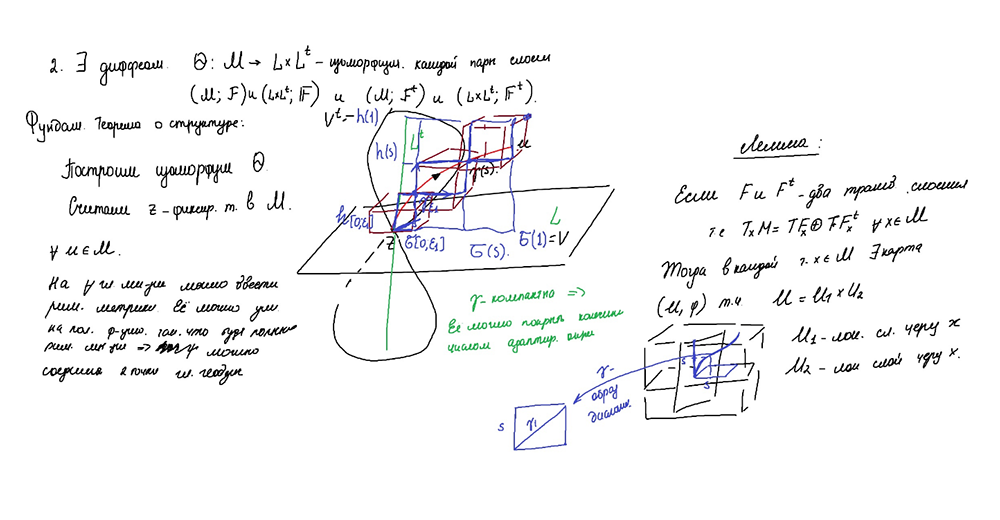 2. ∃ диффеом. Θ: M → L×Lᵗ - изоморфизм. каждой пары слоен
(M; F) и (L×Lᵗ; 𝔽) и (M; Fᵗ) и (L×Lᵗ; 𝔽ᵗ).
Фундам. Теорема о структуре:
Построим изоморфизм Θ.
Считаем z - фиксир. т. в M.
∀ u ∈ M.
На ∀ гл. мн-зии можно ввести
рим. метрику Её можно ум
на пол. ф-цию. так. что будет полная
рим. мн-зии => можно
соединив 2 точки гл. геодез
Vᵗ = h(1)
h(s)
Lᵗ
u
γ(s).
h[0,ε₁]
γ₁
z
б[0,ε₁]
б(s).
б(1)=V
L
γ - компактно =>
Её можно покрыть конечным
числом адаптир. окр.
Лемма:
Если F и Fᵗ - два трансв. слоения
т.е TₓM = TFₓ ⊕ TFₓᵗ ∀ x∈M
Тогда в каждой т. x∈M ∃ карта
(U, φ) т.ч U = U₁ × U₂
U₁ - лок. сл. через x
U₂ - лок слой через x.
s
s
γ -
образ
диагон.
s
γ₁